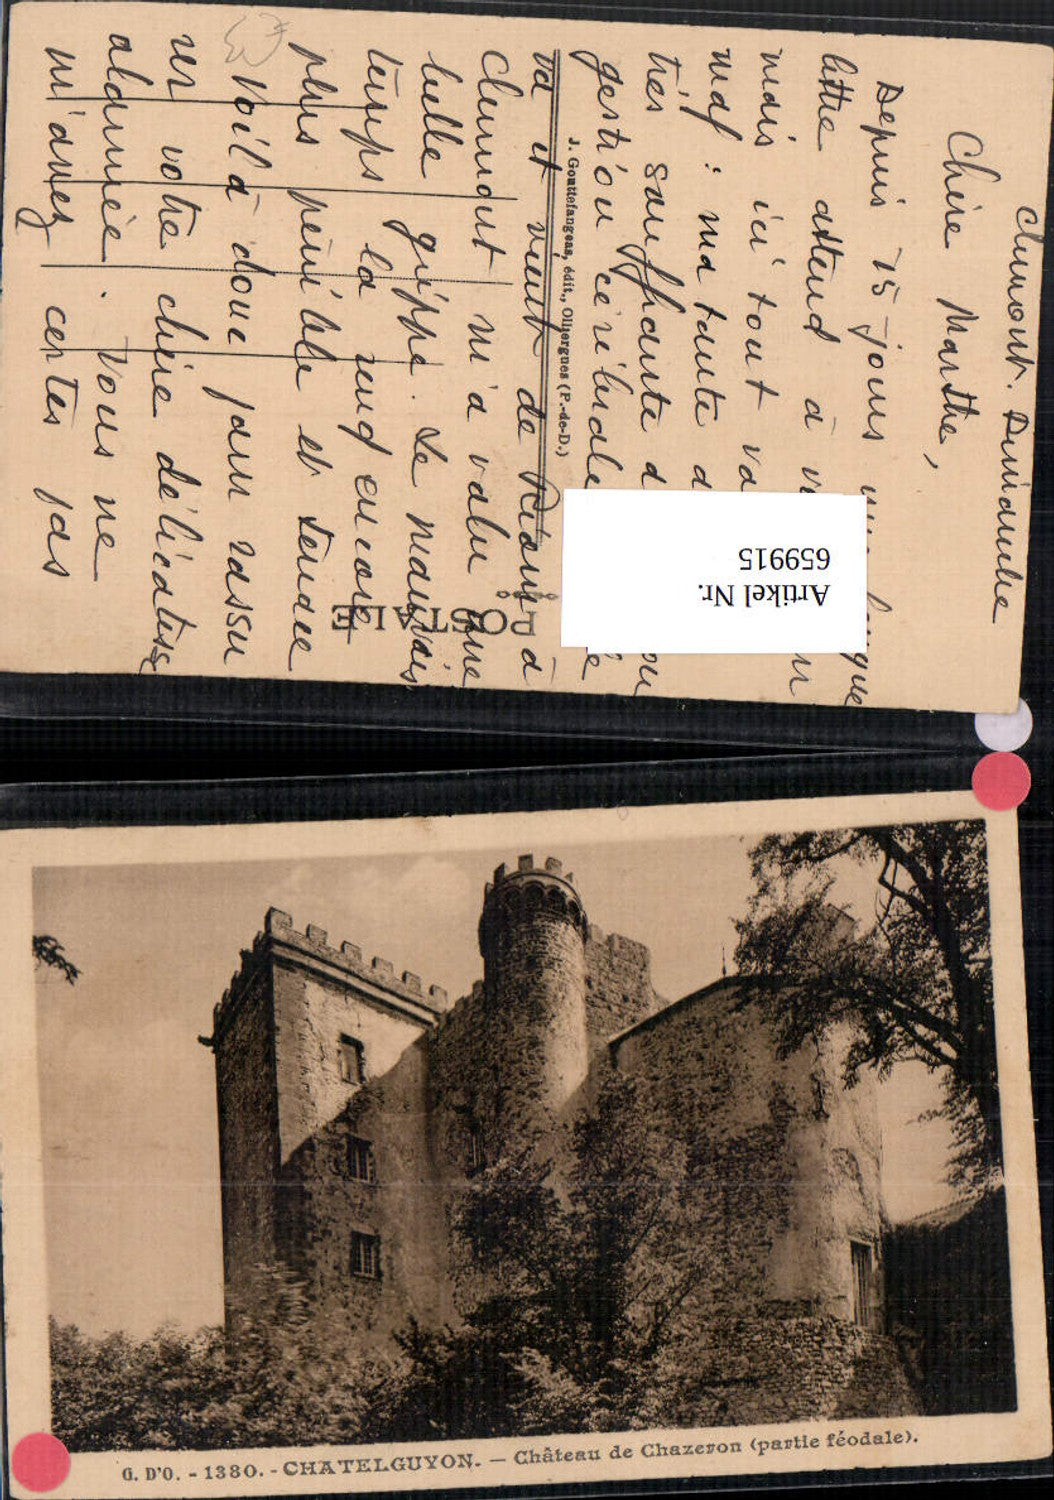 Clermont. Dimanche
Chère Marthe,
Depuis 15 jours une longue
lettre attend à
mais ici tout va
mal : ma tante
très souffrante
gestion cérébrale
va et vient de Riom à
Clermont m'a valu une
belle grippe. Le mauvais
temps la rend encore
plus pénible et tenace
Voilà donc pour rassu
rer votre chère délicatesse
alarmée. Vous ne
m'avez certes pas
J. Gouttefangeas, édit., Olliergues (P.-de-D.)
POSTALE
Artikel Nr.
659915
G. D'O. - 1380. - CHATELGUYON. — Château de Chazeron (partie féodale).